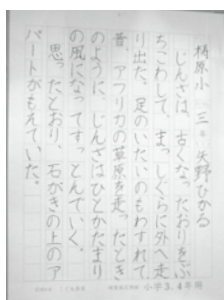 梼原小 三年 矢野ひかる
じんざは、古くなったおりをぶ
ちこわして、まっしぐらに外へ走
り出た。足のいたいのもわすれて、
昔、アフリカの草原を走ったとき
のように、じんざはひとかたまり
の風になってすっとんでいく。
思ったとおり、石がきの上のア
パートがもえていた。
小学3,4年用